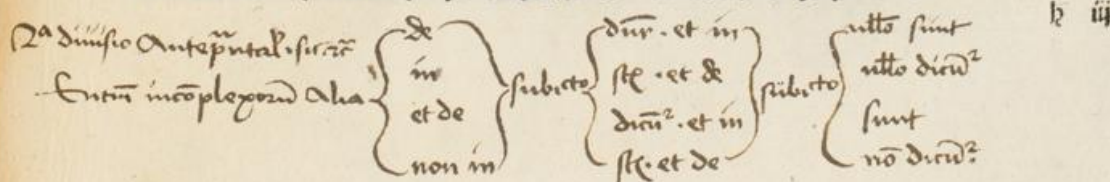 2ᵃ diuisio Antep̄ntal' sit r̄c
Entiū incōplexorū Alia
de
in
et de
non in
subiecto
dn̄r · et in
st̄ · et de
dicūr · et in
st̄ · et de
subiecto
nllo sunt
nllo dicūr
sunt
nō dicūr
h iij